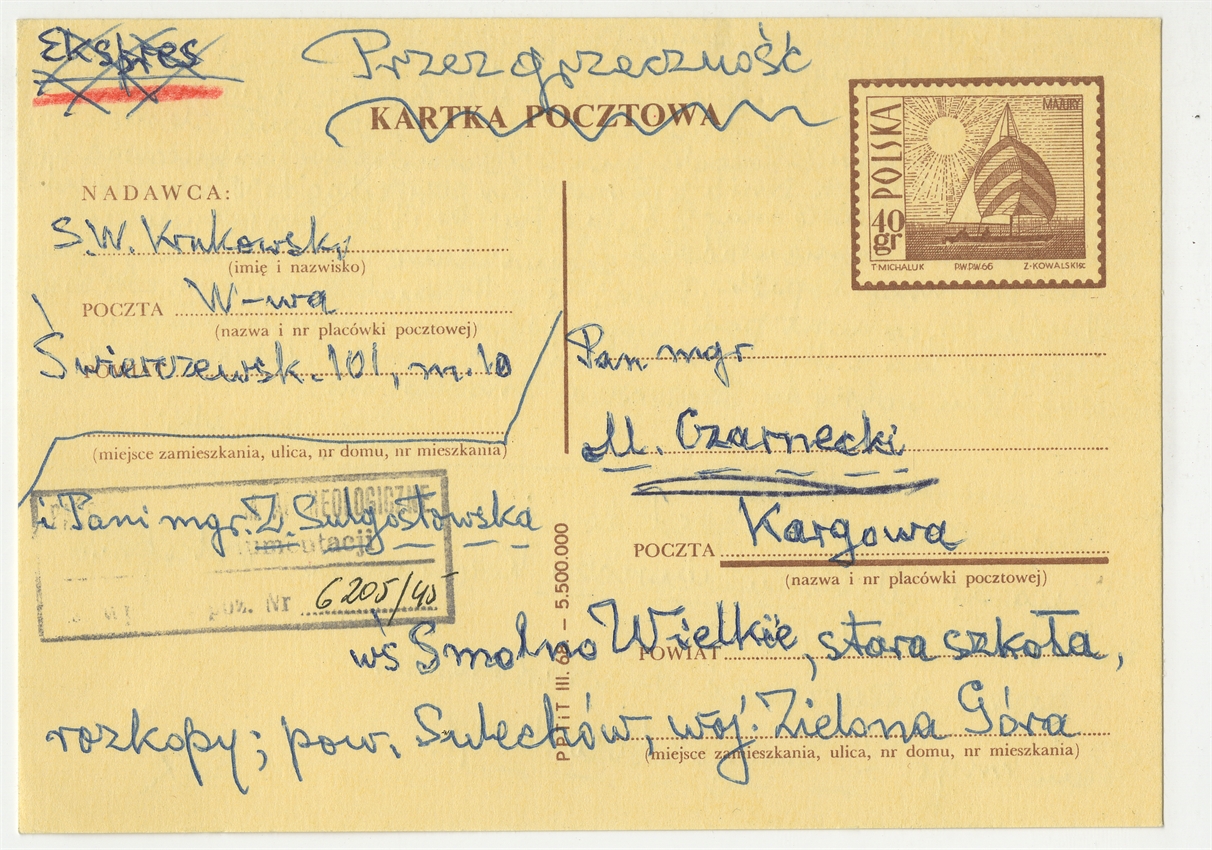 Ekspres
Przez grzeczność
KARTKA POCZTOWA
POLSKA
MAZURY
40
gr
T. MICHALUK P.W.P.W. 66 Z. KOWALSKI sc.
NADAWCA:
S.W. Krukowski
(imię i nazwisko)
POCZTA W-wa
(nazwa i nr placówki pocztowej)
Świerczewsk. 101, m. 10
(miejsce zamieszkania, ulica, nr domu, nr mieszkania)
Pan mgr
M. Czarnecki
POCZTA Kargowa
(nazwa i nr placówki pocztowej)
i Pani mgr. Z. Sulgostowska
umentacji
poz. Nr 6205/45
PPTiT III. – 5.500.000
wś Smolno Wielkie, stara szkoła,
POWIAT
rozkopy; pow. Sulechów, woj. Zielona Góra
(miejsce zamieszkania, ulica, nr domu, nr mieszkania)